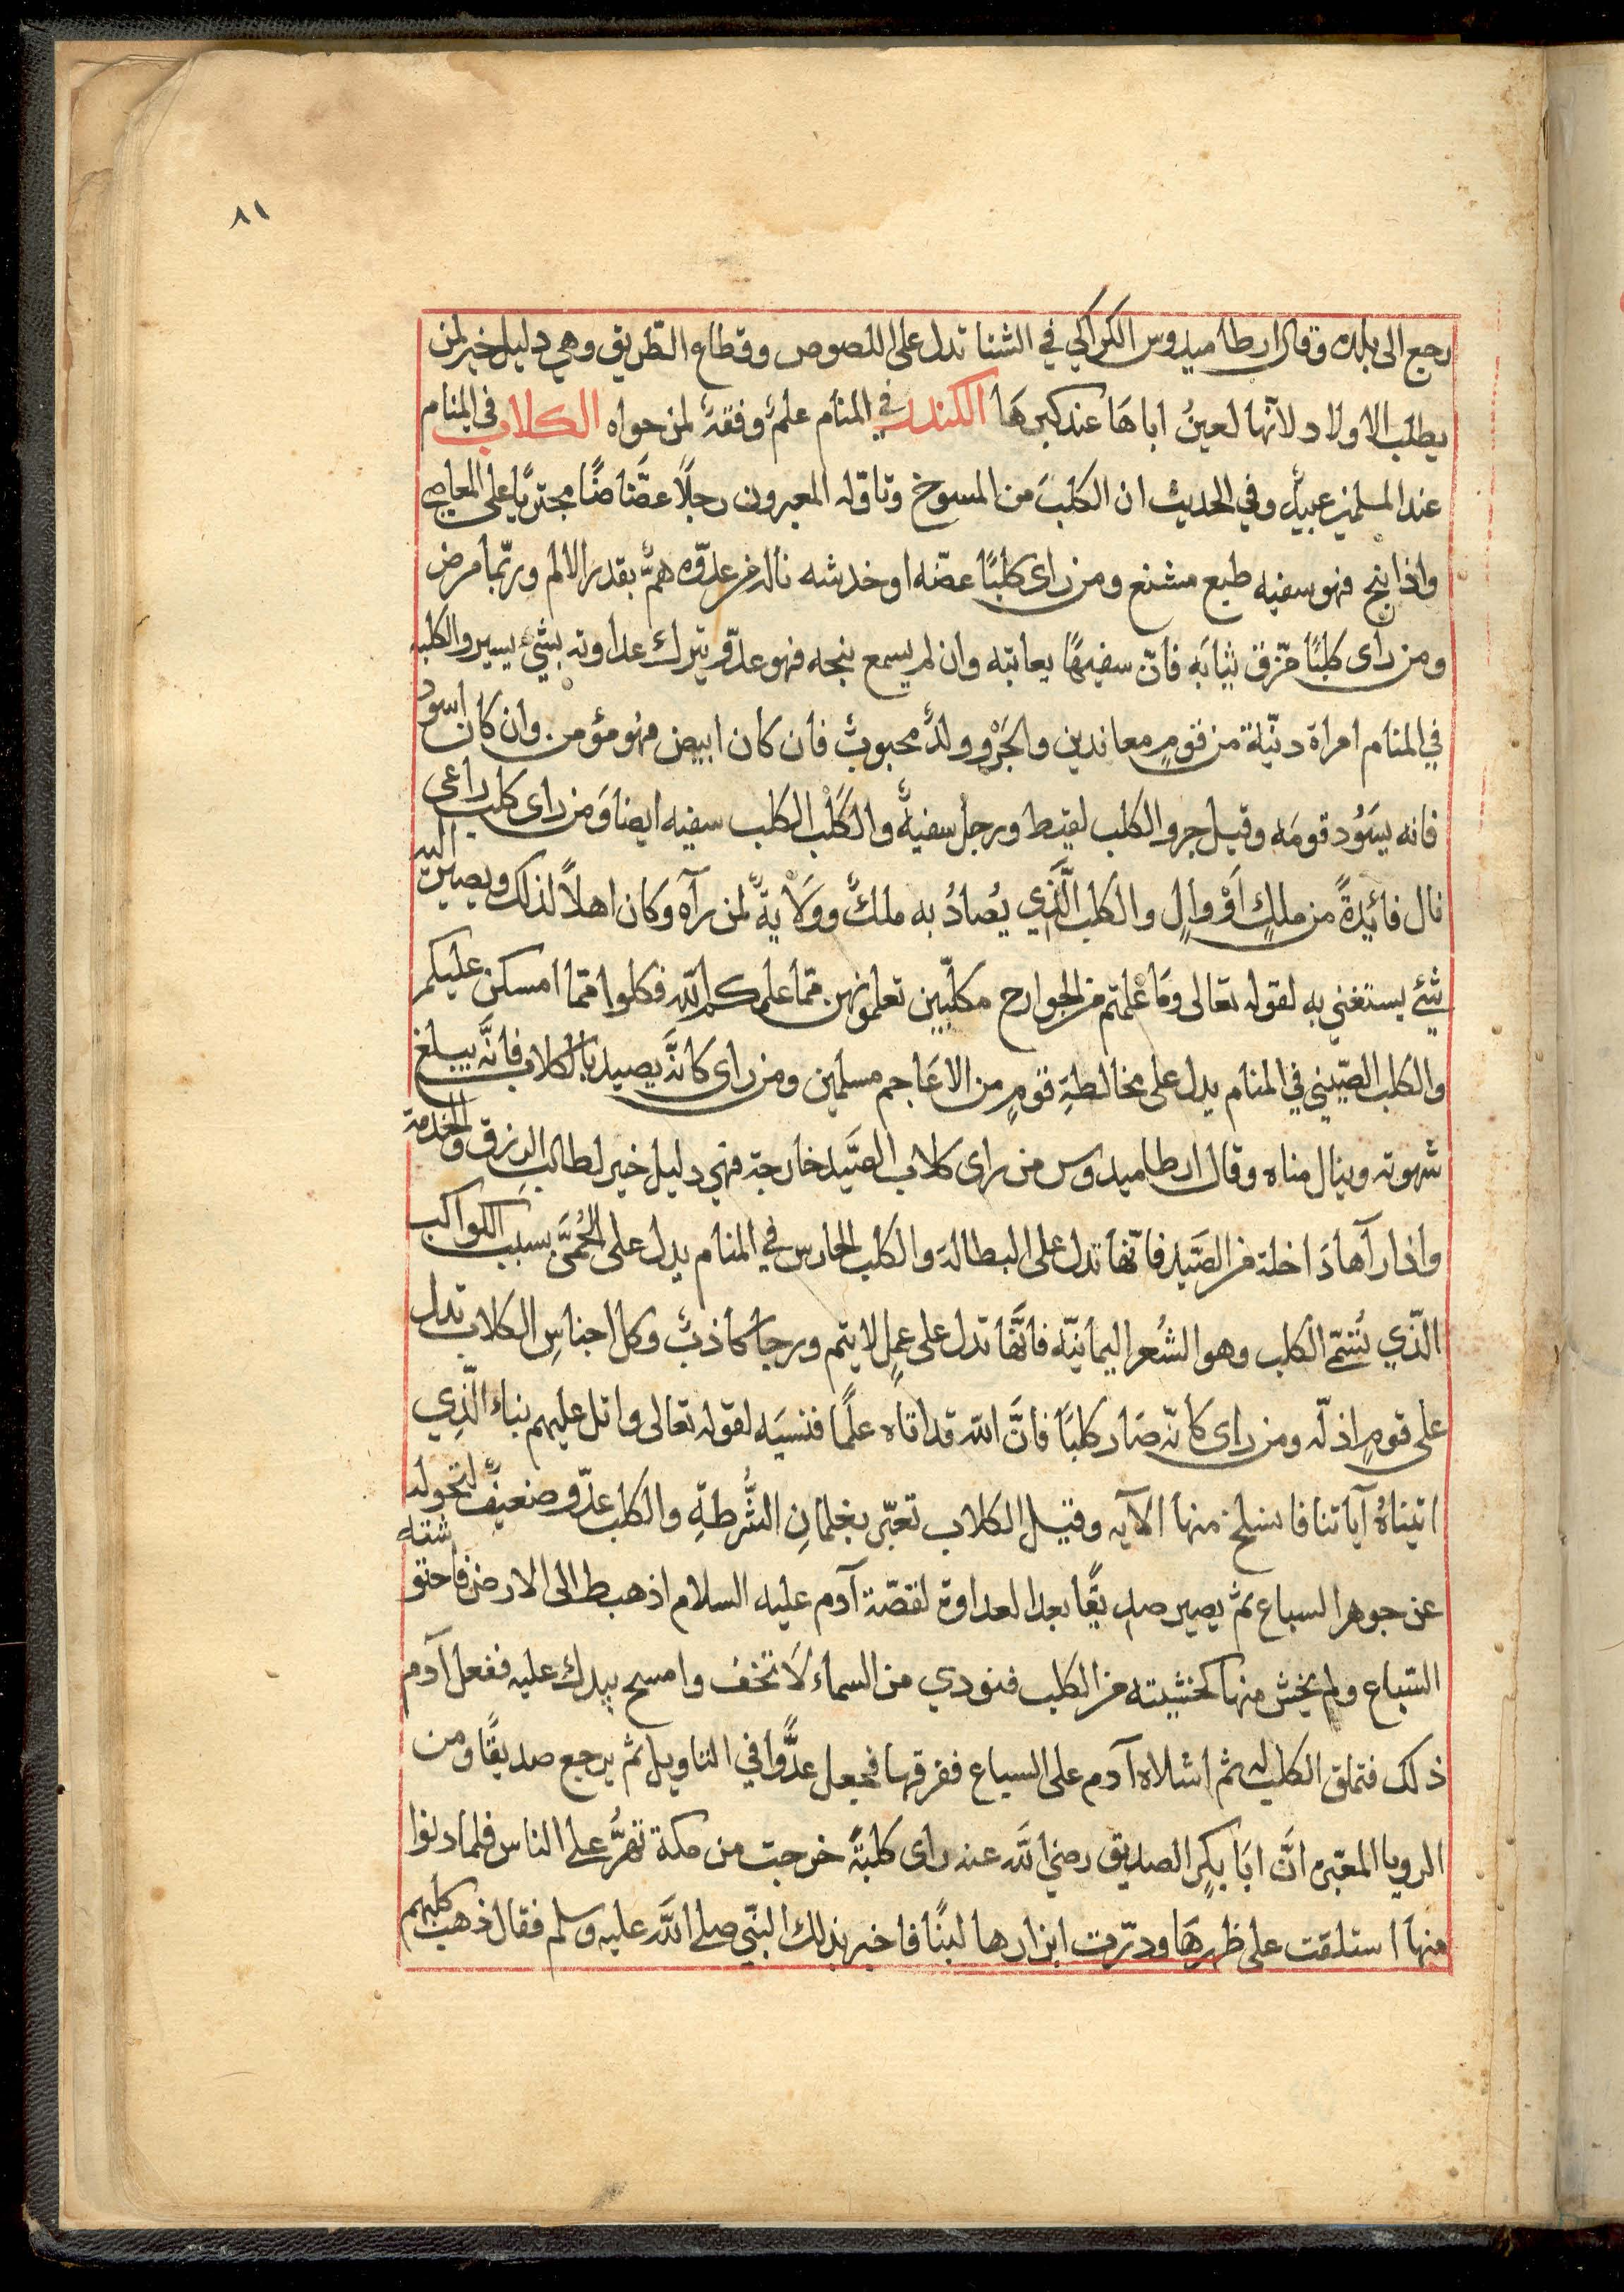 ٨١
رجع الى بلده وقال ارطاميدوس الكراكي في الشتا تدل على اللصوص وقطاع الطّريق وهي دليل خير لمن
يطلب الاولاد لانّها تعينُ اباهَا عند كبرهَا الكندر في المنام علمٌ وفقهٌ لمن حواه الكلاب في المنام
عند المسلمين عبيدٌ وفي الحديث ان الكلبَ من المسوخ وتاوّله المعبرون رجلاً مجتريًا على المعاصي
واذا نبح فهو سفيه طبع مشنع ومن راى كلبًا عضّه او خدشه ناله من عدوّه همٌّ بقدر الالم وربّما مرض
ومن راى كلبًا مزّق ثيابَه فانّ سفيهًا يعاتبه وان لم يسمع نبحه فهو عدّو يترك عداوته بشئٍ يسير والكلبه
في المنام امراة دنيّة من قومٍ معاندين والجَرْو ولدٌ محبوبٌ فان كان ابيض فهُو مؤمن وان كان اسود
فانه يسَوُد قومَه وقيل جرو الكلب لقيط ورجل سفيهٌ والكَلْب الكلب سفيه ايضا وَمن راى كلب راعى
نال فائدةً من ملكٍ اَوْ والٍ والكلب الَّذي يُصادُ به ملكٌ ووَلَايةٌ لمن رآه وَكان اهلاً لذلك ويصير اليه
شئ يستغني به لقوله تعالى وَمَا علمتم من الجوارح مكلّبين تعلمونهن ممّا علمكم الله فكلوا ممّا امسكن عليكم
والكلب الصّيني في المنام يدل على مخالطةِ قومٍ من الاعَاجم مسلمين ومن راى كانَّه يصيد بالكلاب فانَّه يبلغ
شهوته وينال مناه وقال ارطاميدوس من راى كلاب الصَّيد خارجة فهي دليل خير لطالب الرزق والخدمة
واذا رآها دَاخلة من الصَّيد فانّها تدل على البطالة وَالكلب الحارس في المنام يدل على الحُمَّى بسبب الكواكب
الذّي تُسَمّى الكلب وهو الشُعر اليمانيّه فانَّها تدل على عملٍ لا يتم ورجا كاذبٌ وكل اجناسِ الكلاب تدل
على قومٍ اذلّه ومن راى كانّه صَار كلبًا فانَّ الله قد اتاه علمًا فنسيَه لقوله تعالى واتل عليهم نباء الَّذِي
اتيناهُ آياتنا فانسلخ منها الآيه وقيل الكلاب تعبّر بغلمانِ الشُّرطةِ والكلب عدّو ضعيفٌ لتحوله
عن جوهر السباع ثم يصير صديقًا بعد العداوة لقصّة آدم عليه السلام اذ هبط الى الارض فاحتوشته
السّباع ولم يخش منها كخشيته من الكلب فنودي من السماء لَا تخف وامسح بيدك عليه ففعل آدم
ذلك فتملق الكلب له ثم اشلاه آدم على السباع ففرقها فجعل عدًّوا في التاويل ثم يرجع صديقًا ومن
الرويا المعبّره انَّ ابَا بكرٍ الصديق رضي الله عنه راى كلبَةً خرجت من مكة تهرُّ على الناس فلما دنوا
منهَا استلقت على ظهرهَا ودرّت ابزازها لبنًا فاخبر بذلك النبّي صلى الله عليه وسلم فقال ذهب كلبهم